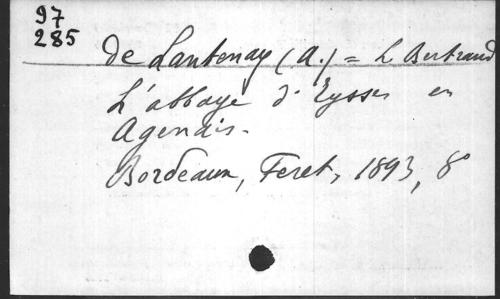 97
285
de Lantenay (A.) = L Bertrand
L'abbaye d'Eysses en
Agenais.
Bordeaux, Feret, 1893, 8°